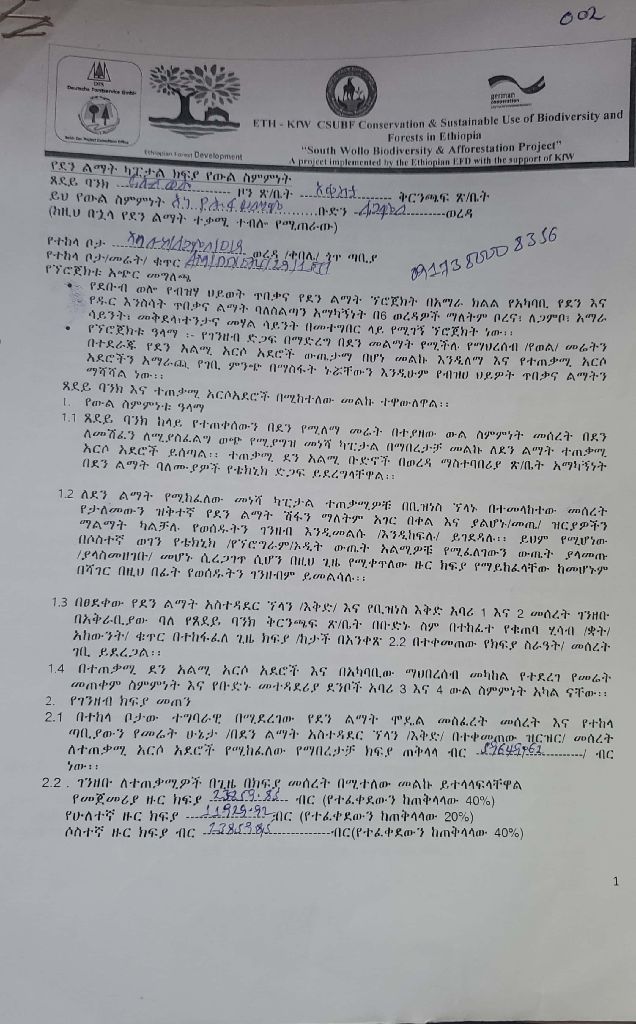 002
DFS
Deutsche Forstservice GmbH
Ethiopian Forest Development
german cooperation
ETH - KfW CSUBF Conservation & Sustainable Use of Biodiversity and
Forests in Ethiopia
"South Wollo Biodiversity & Afforestation Project"
A project implemented by the Ethiopian EFD with the support of KfW
የደን ልማት ካፒታል ክፍያ የውል ስምምነት
ጸደይ ባንክ ዞን ጽ/ቤት ቅርንጫፍ ጽ/ቤት
ይህ የውል ስምምነት ቡድን ወረዳ
(ከዚህ በኋላ የደን ልማት ተቃሚ ተብሎ የሚጠራው)
የተከላ ቦታ ወረዳ /ቀበሌ/ ጎጥ ጣቢያ
የተከላ ቦታ/መሬት/ ቁጥር
የፕሮጀክቱ አጭር መግለጫ
• የደቡብ ወሎ የብዝሃ ህይወት ጥበቃና የደን ልማት ፕሮጀክት በአማራ ክልል የአካባቢ የደን እና
የዱር እንስሳት ጥበቃና ልማት ባለስልጣን አማካኝነት በ6 ወረዳዎች ማለትም ቦረና፣ ለጋምቦ፣ አማራ
ሳይንት፣ መቅደላ፣ተንታና መሃል ሳይንት በመተግበር ላይ የሚገኝ ፕሮጀክት ነው፡፡
• የፕሮጀክቱ ዓላማ ፡- የገንዘብ ድጋፍ በማድረግ በደን መልማት የሚችሉ የማህረሰብ /የወል/ መሬትን
በተደራጁ የደን አልሚ አርሶ አደሮች ውጤታማ በሆነ መልኩ እንዲለማ እና የተጠቃሚ አርሶ
አደሮችን አማራጪ የገቢ ምንጭ በማስፋት ኑሯቸውን እንዲሁም የብዝሀ ህይዎት ጥበቃና ልማትን
ማሻሻል ነው፡፡
ጸደይ ባንክ እና ተጠቃሚ አርሶአደሮች በሚከተለው መልኩ ተዋውለዋል፡፡
1. የውል ስምምነቱ ዓላማ
1.1 ጸደይ ባንክ ከላይ የተጠቀሰውን በደን የሚለማ መሬት በተያዘው ውል ስምምነት መሰረት በደን
ለመሸፈን ለሚያስፈልግ ወጭ የሚያግዝ መነሻ ካፒታል በማበረታቻ መልኩ ለደን ልማት ተጠቃሚ
አርሶ አደሮች ይሰጣል፡፡ ተጠቃሚ ደን አልሚ ቡድኖች በወረዳ ማስተባበሪያ ጽ/ቤት አማካኝነት
በደን ልማት ባለሙያዎች የቴክኒክ ድጋፍ ይደረግላቸዋል፡፡
1.2 ለደን ልማት የሚከፈለው መነሻ ካፒታል ተጠቃሚዎቹ በቢዝነስ ፕላኑ በተመላከተው መሰረት
የታለመውን ዝቅተኛ የደን ልማት ሽፋን ማለትም አገር በቀል እና ያልሆነ/መጤ/ ዝርያዎችን
ማልማት ካልቻሉ የወሰዱትን ገንዘብ እንዲመልሱ /እንዲከፍሉ/ ይገደዳሉ፡፡ ይህም የሚሆነው
በሶስተኛ ወገን የቴክኒክ /የፕሮግራም/ኦዲት ውጤት አልሚዎቹ የሚፈለገውን ውጤት ያላመጡ
/ያላስመዘገቡ/ መሆኑ ሲረጋገጥ ሲሆን በዚህ ጊዜ የሚቀጥለው ዙር ክፍያ የማይከፈላቸው ከመሆኑም
በሻገር በዚህ በፊት የወሰዱትን ገንዘብም ይመልሳሉ፡፡
1.3 በፀደቀው የደን ልማት አስተዳደር ፕላን /እቅድ/ እና የቢዝነስ እቅድ አባሪ 1 እና 2 መሰረት ገንዘቡ
በአቅራቢያው ባለ የጸደይ ባንክ ቅርንጫፍ ጽ/ቤት በቡድኑ ስም በተከፈተ የቁጠባ ሂሳብ /ቋት/
አካውንት/ ቁጥር በተከፋፈለ ጊዜ ክፍያ /ከታች በአንቀጽ 2.2 በተቀመጠው የክፍያ ስራዓት/ መሰረት
ገቢ ይደረጋል፡፡
1.4 በተጠቃሚ ደን አልሚ አርሶ አደሮች እና በአካባቢው ማህበረሰብ መካከል የተደረገ የመሬት
መጠቀም ስምምነት እና የቡድኑ መተዳደሪያ ደንቦች አባሪ 3 እና 4 ውል ስምምነት አካል ናቸው፡፡
2. የገንዘብ ክፍያ መጠን
2.1 በተከላ ቦታው ተግባራዊ በሚደረገው የደን ልማት ሞዴል መስፈረት መሰረት እና የተከላ
ጣቢያውን የመሬት ሁኔታ /በደን ልማት አስተዳደር ፕላን /እቅድ/ በተቀመጠው ዝርዝር/ መሰረት
ለተጠቃሚ አርሶ አደሮች የሚከፈለው የማበረታቻ ክፍያ ጠቅላላ ብር 59649.62 / ብር
ነው፡፡
2.2 . ገንዘቡ ለተጠቃሚዎች በጊዜ በክፍያ መሰረት በሚተለው መልኩ ይተላለፍላቸዋል
የመጀመሪያ ዙር ክፍያ 23859.85 ብር (የተፈቀደውን ከጠቅላላው 40%)
የሁለተኛ ዙር ክፍያ 11929.92 ብር (የተፈቀደውን ከጠቅላላው 20%)
ሶስተኛ ዙር ክፍያ ብር 23859.85 ብር(የተፈቀደውን ከጠቅላላው 40%)
1